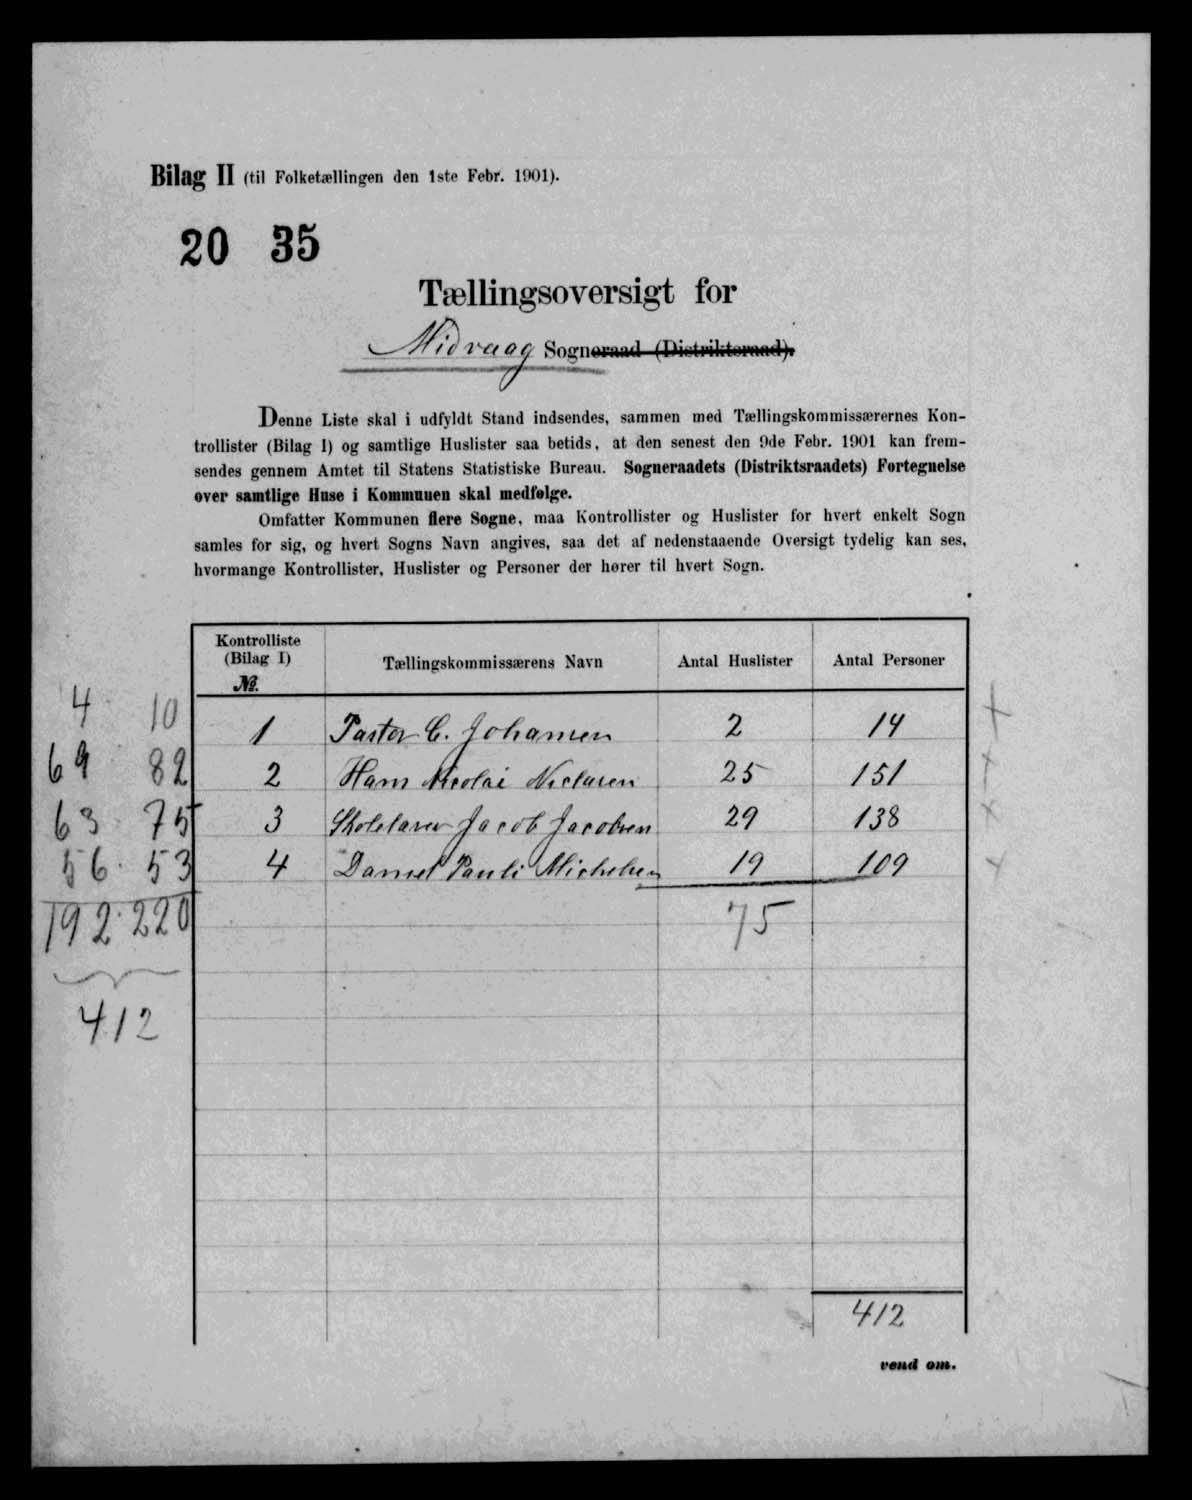 Bilag II (til Folketællingen den 1ste Febr. 1901).
20 35
Tællingsoversigt for
Midvaag Sogneraad (Distriktsraad).
Denne Liste skal i udfyldt Stand indsendes, sammen med Tællingskommissærernes Kon-
trollister (Bilag I) og samtlige Huslister saa betids, at den senest den 9de Febr. 1901 kan frem-
sendes gennem Amtet til Statens Statistiske Bureau. Sogneraadets (Distriktsraadets) Fortegnelse
over samtlige Huse i Kommunen skal medfølge.
Omfatter Kommunen flere Sogne, maa Kontrollister og Huslister for hvert enkelt Sogn
samles for sig, og hvert Sogns Navn angives, saa det af nedenstaaende Oversigt tydelig kan ses,
hvormange Kontrollister, Huslister og Personer der hører til hvert Sogn.
Kontrolliste
(Bilag I)
№.
Tællingskommissærens Navn
Antal Huslister
Antal Personer
4 10 1 Pastor C. Johansen 2 14
69 82 2 Hans Nicolai Niclasen 25 151
63 75 3 Skolelærer Jacob Jacobsen 29 138
56 53 4 Daniel Pauli Michelsen 19 109
192 220 75
412
412
vend om.